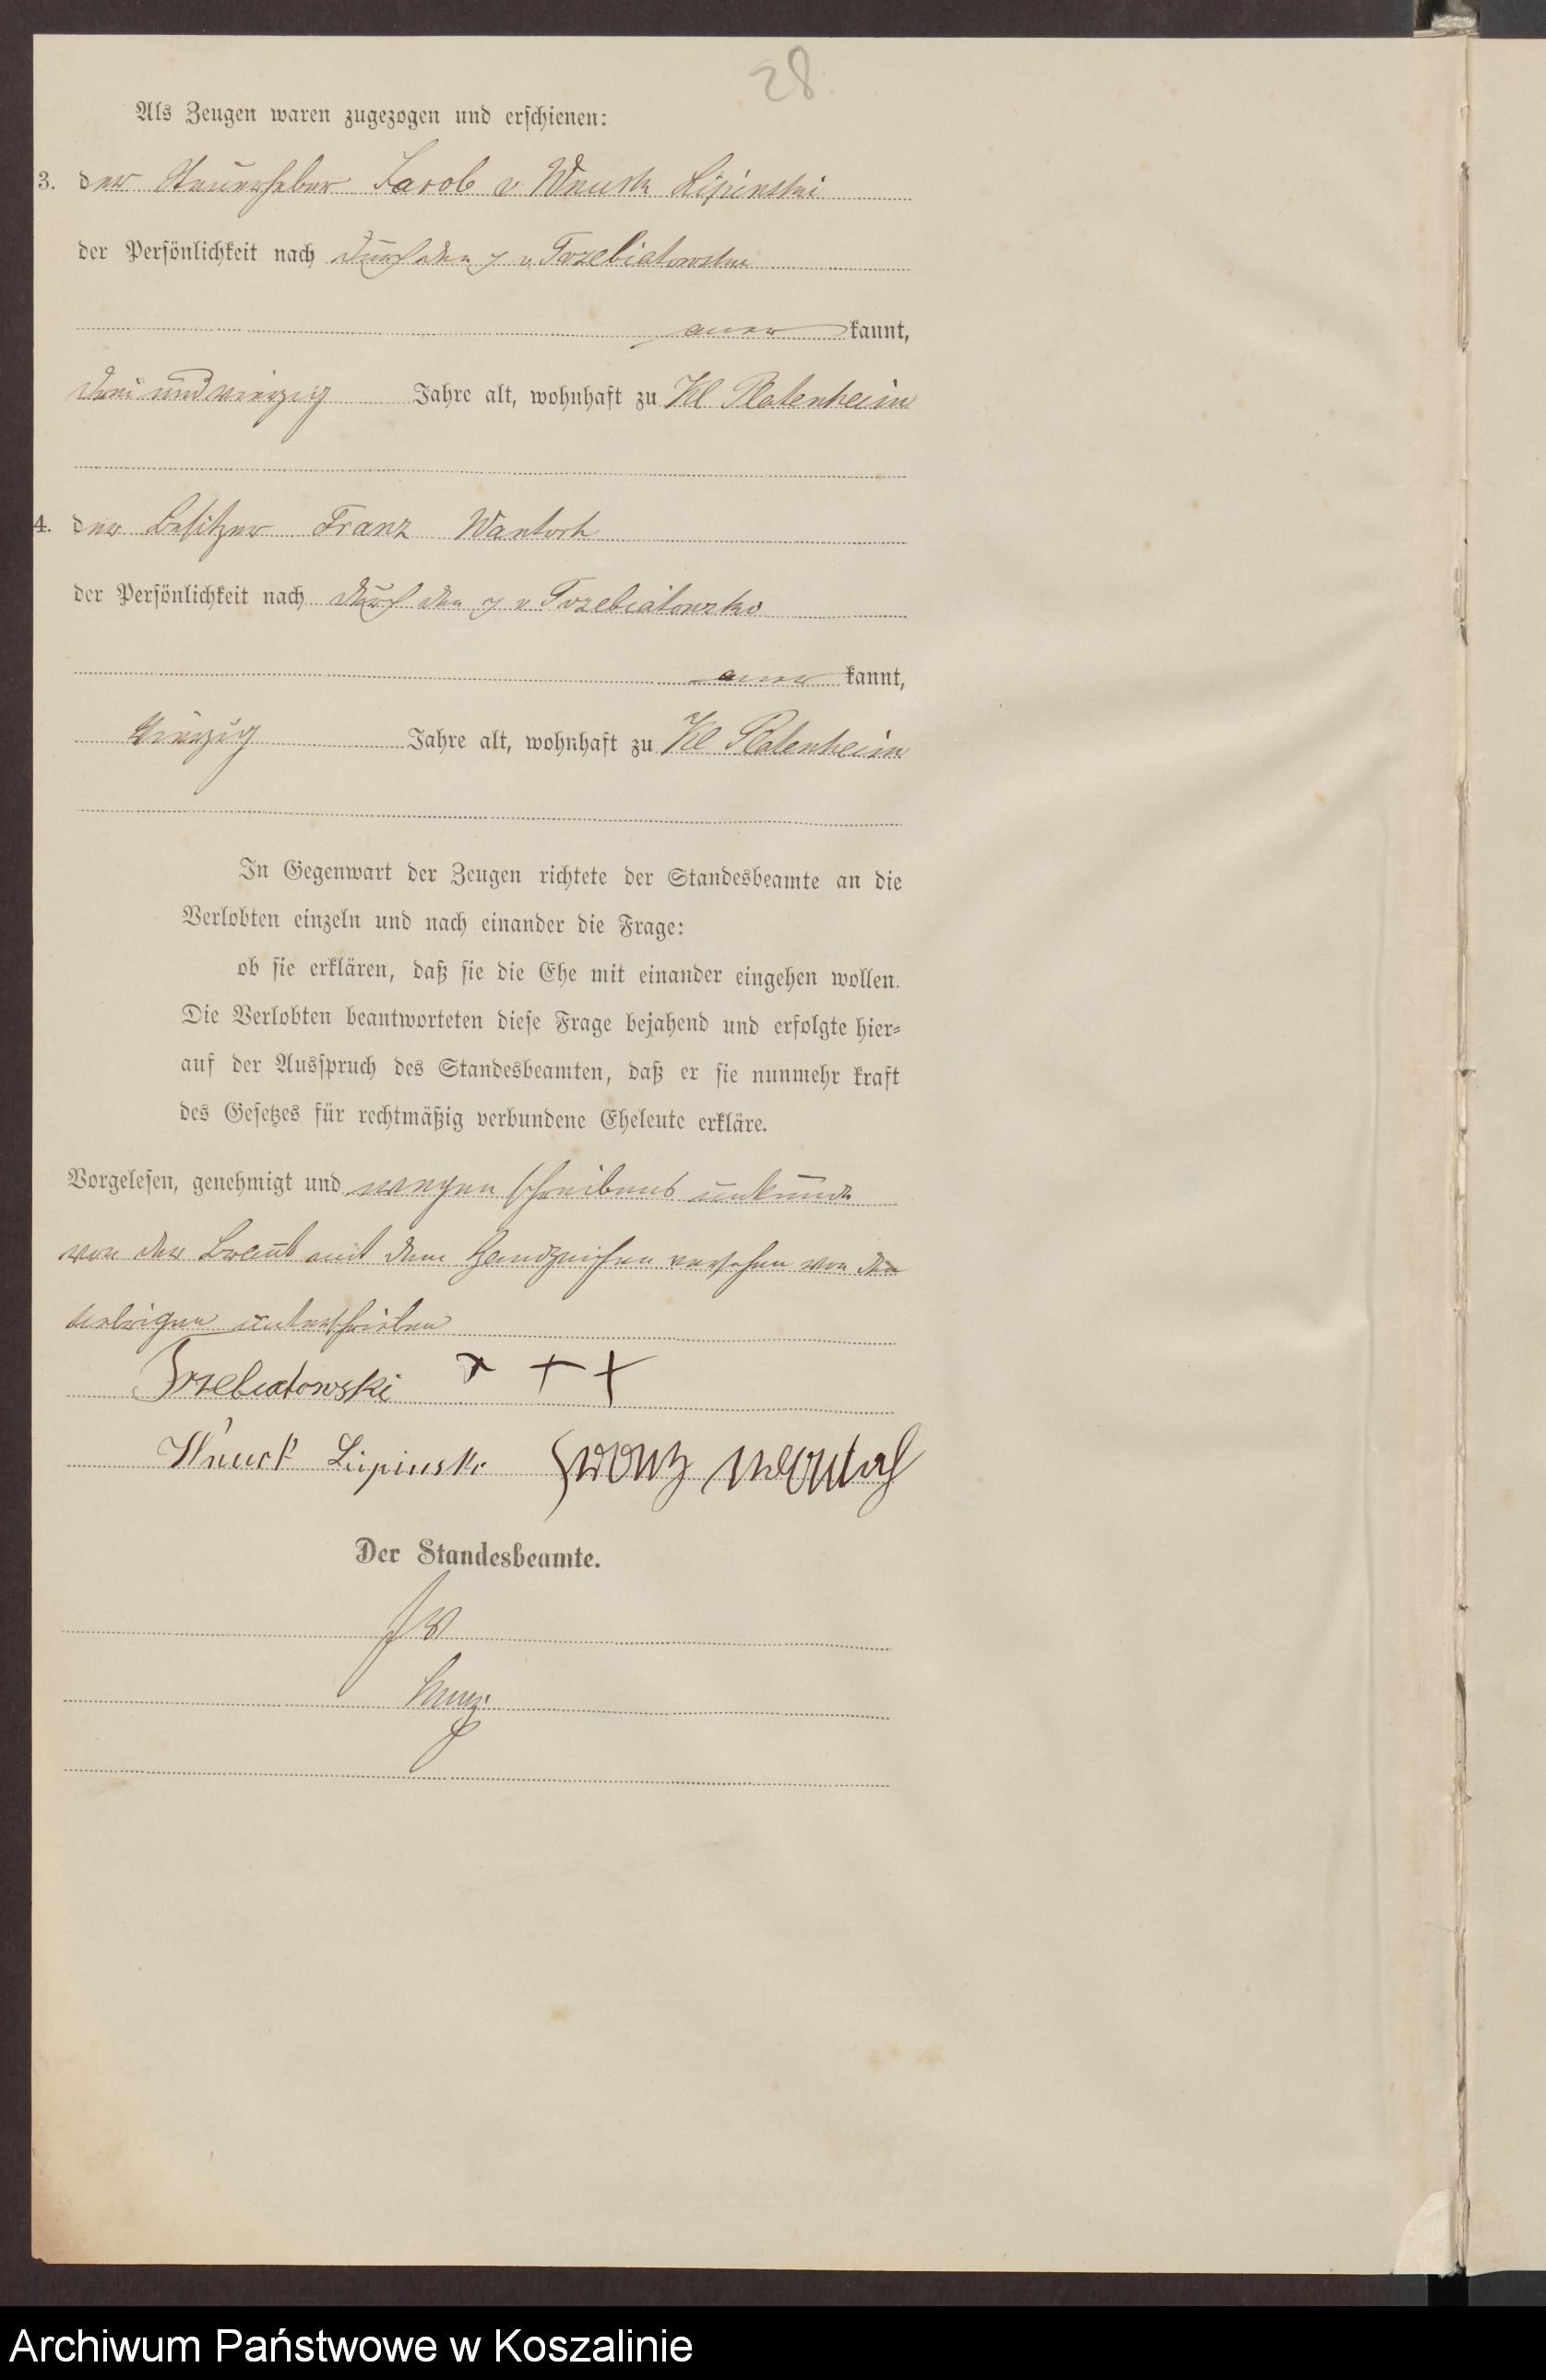 28
Als Zeugen waren zugezogen und erschienen:
3. der Steuererheber Jacob v. Wnuck Lipinski
der Persönlichkeit nach durch den p v. Trzebiatowski
aner kannt,
drei und vierzig Jahre alt, wohnhaft zu Kl Platenheim
4. der Besitzer Franz Wantoch
der Persönlichkeit nach durch den p v Trzebiatowski
aner kannt,
vierzig Jahre alt, wohnhaft zu Kl Platenheim
In Gegenwart der Zeugen richtete der Standesbeamte an die
Verlobten einzeln und nach einander die Frage:
ob sie erklären, daß sie die Ehe mit einander eingehen wollen.
Die Verlobten beantworteten diese Frage bejahend und erfolgte hier=
auf der Ausspruch des Standesbeamten, daß er sie nunmehr kraft
des Gesetzes für rechtmäßig verbundene Eheleute erkläre.
Vorgelesen, genehmigt und wegen schreibens unkunde
von der Braut mit dem Handzeichen versehen von den
uebrigen unterschrieben
Trzebiatowski + + +
Wnuck Lipinski Franz Wantoch
Der Standesbeamte.
Archiwum Państwowe w Koszalinie